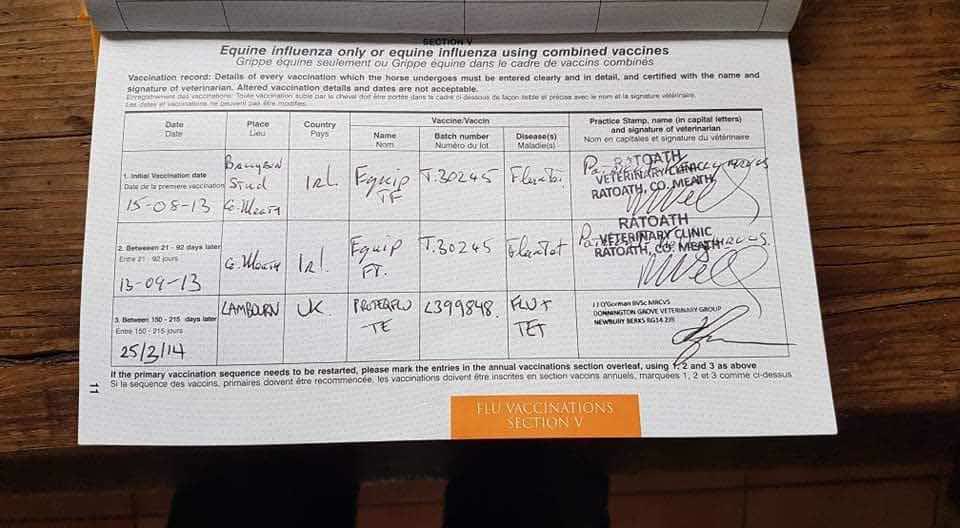 SECTION V
Equine influenza only or equine influenza using combined vaccines
Grippe équine seulement ou Grippe équine dans le cadre de vaccins combinés
Vaccination record: Details of every vaccination which the horse undergoes must be entered clearly and in detail, and certified with the name and
signature of veterinarian. Altered vaccination details and dates are not acceptable.
Enregistrement des vaccinations: Toute vaccination subie par le cheval doit être portée dans le cadre ci-dessous de façon lisible et précise avec le nom et la signature vétérinaire.
Les dates et vaccinations ne peuvent pas être modifiées.
Date
Date
Place
Lieu
Country
Pays
Vaccine/Vaccin
Name
Nom
Batch number
Numéro du lot
Disease(s)
Maladie(s)
Practice Stamp, name (in capital letters)
and signature of veterinarian
Nom en capitales et signature du vétérinaire
1. Initial Vaccination date
Date de la première vaccination
15-08-13
Stud
Co. Meath
Irl.
Equip
T.30245
RATOATH
VETERINARY CLINIC
RATOATH, CO. MEATH
2. Betweeen 21 - 92 days later
Entre 21 - 92 jours
13-09-13
Co. Meath
Irl.
Equip
FT.
T.30245
RATOATH
VETERINARY CLINIC
RATOATH, CO. MEATH
3. Between 150 - 215 days later
Entre 150 - 215 jours
25/3/14
LAMBOURN
UK
PROTEQFLU
TE
L399848.
FLU +
TET
J J O'Gorman BVSc MRCVS
DONNINGTON GROVE VETERINARY GROUP
NEWBURY BERKS RG14 2JB
If the primary vaccination sequence needs to be restarted, please mark the entries in the annual vaccinations section overleaf, using 1, 2 and 3 as above
Si la sequence des vaccins, primaires doivent être recommencée, les vaccinations doivent être inscrites en section vaccins annuels, marquées 1, 2 et 3 comme ci-dessus
11
FLU VACCINATIONS
SECTION V